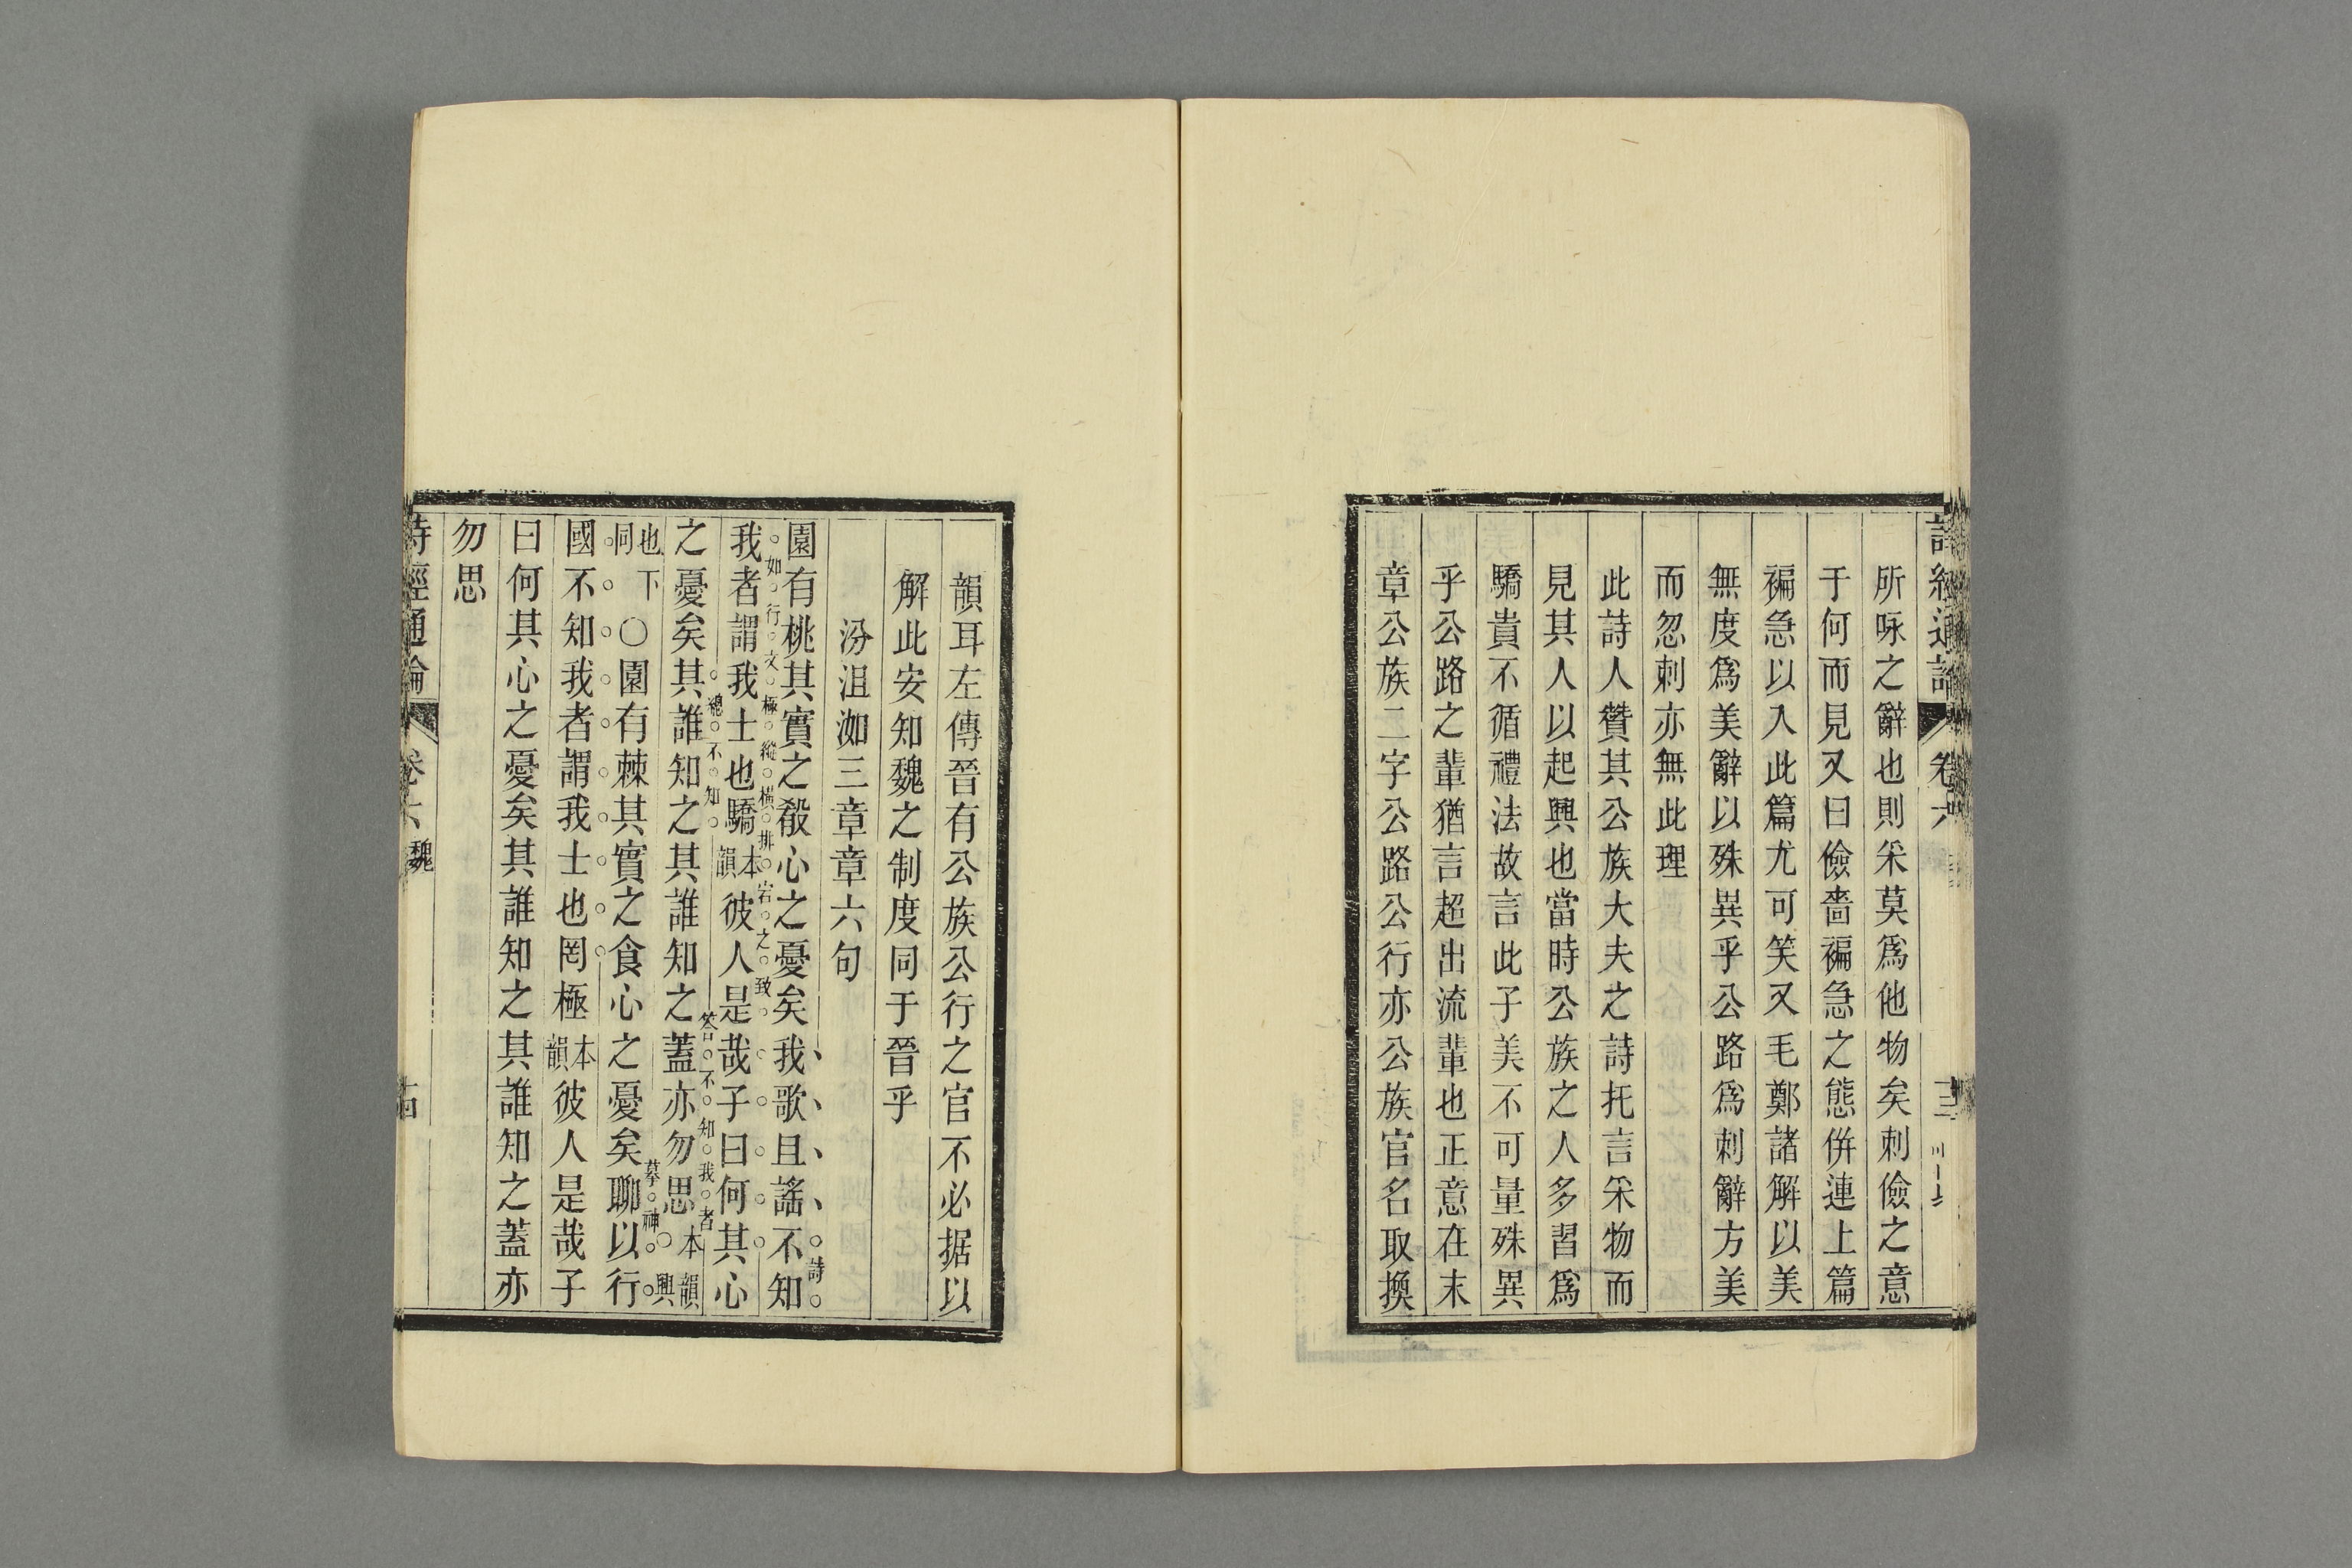 所咏之辭也則采莫爲他物矣刺儉之意
于何而見又曰儉嗇褊急之態併連上篇
褊急以入此篇尤可笑又毛鄭諸解以美
無度爲美辭以殊異乎公路爲刺辭方美
而忽刺亦無此理
此詩人贊其公族大夫之詩托言采物而
見其人以起興也當時公族之人多習爲
驕貴不循禮法故言此子美不可量殊異
乎公路之輩猶言超出流輩也正意在末
章公族二字公路公行亦公族官名取換
韻耳左傳晉有公族公行之官不必据以
解此安知魏之制度同于晉乎
汾沮洳三章章六句
園有桃其實之殽心之憂矣我歌且謠不知
詩如行文極縱橫排宕之致
我者謂我士也驕本韻彼人是哉子曰何其心
總不知答不知我者
之憂矣其誰知之其誰知之蓋亦勿思本韻興
摹神
也下同○園有棘其實之食心之憂矣聊以行
國不知我者謂我士也罔極本韻彼人是哉子
曰何其心之憂矣其誰知之其誰知之蓋亦
勿思
詩經通論 卷六 魏 十四